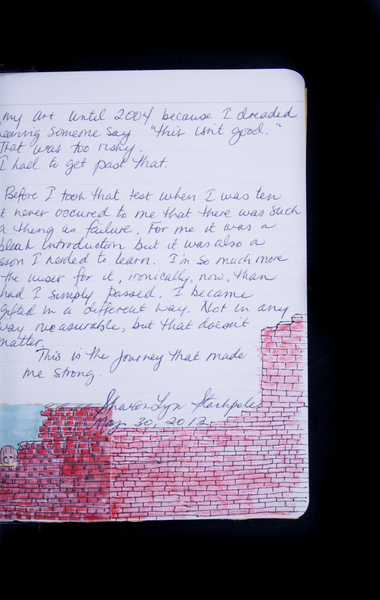 my art until 2004 because I dreaded
hearing someone say "this isn't good."
That was too risky.
I had to get past that.
Before I took that test when I was ten
it never occured to me that there was such
a thing as failure. For me it was a
bleak introduction but it was also a
sson I needed to learn. I'm so much more
the wiser for it, ironically, now, than
had I simply passed. I became
gifted in a different way. Not in any
way measurable, but that doesn't
matter.
This is the journey that made
me strong.
SharonLyn Stackpole
May 30, 2012